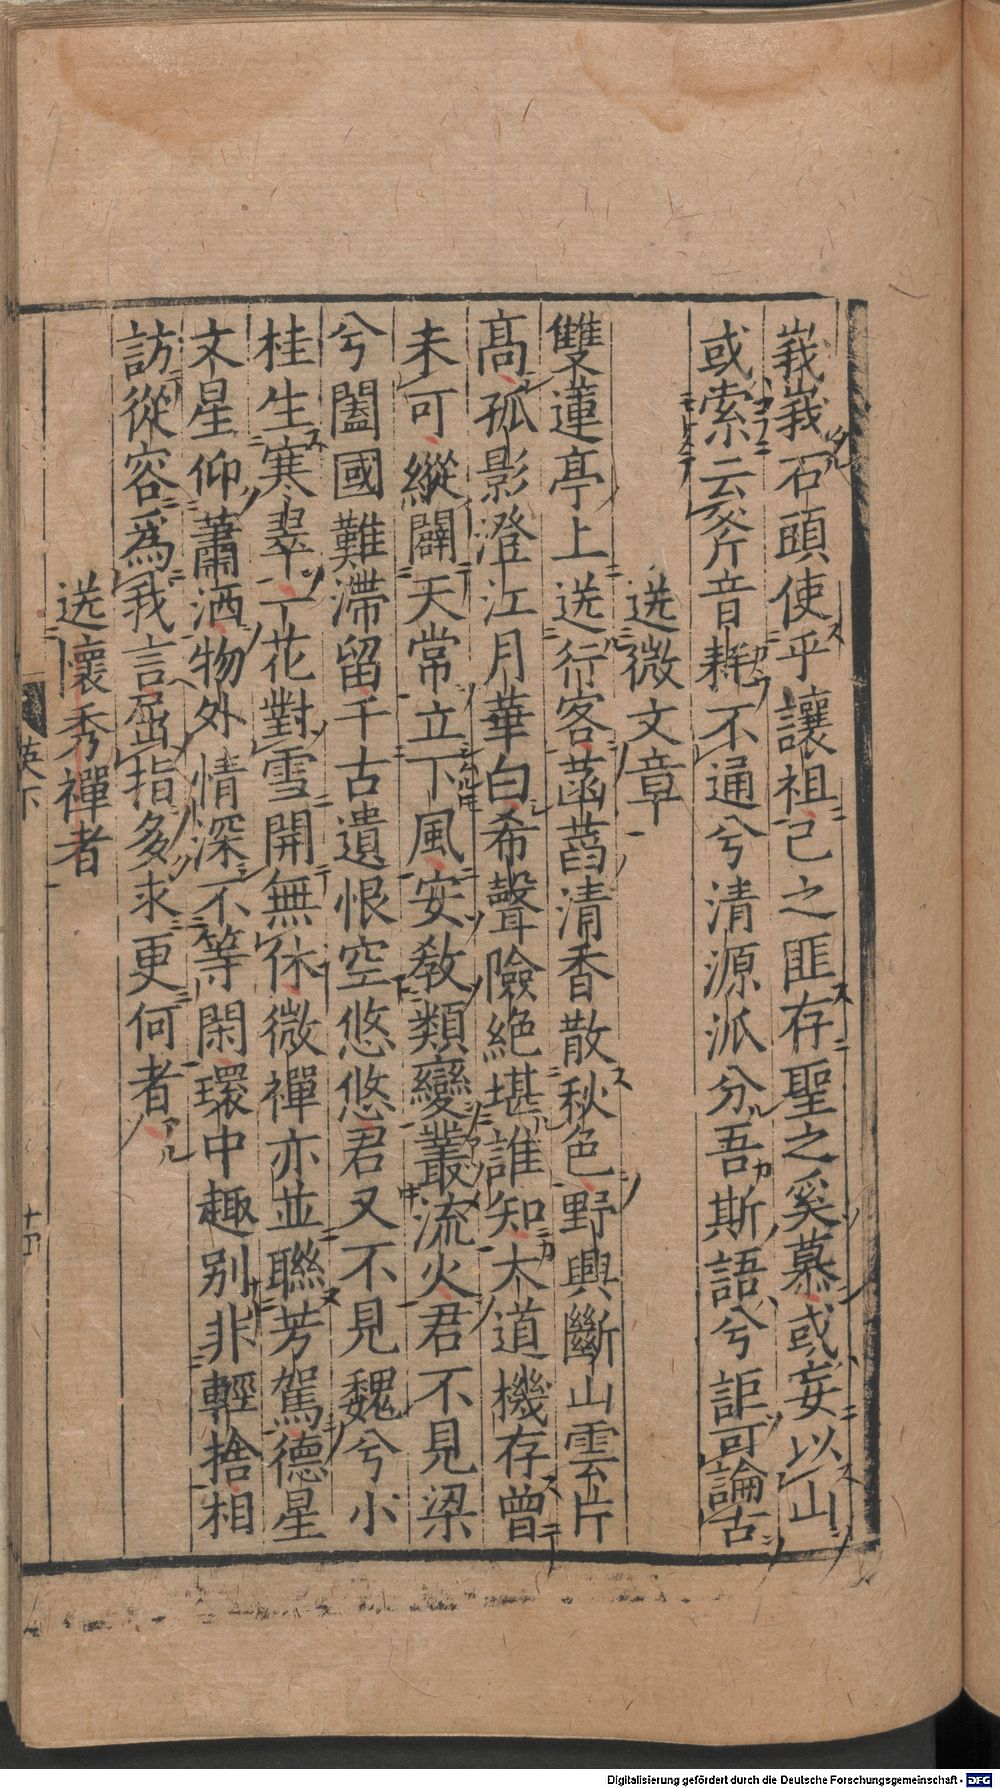 峩峩石頭使乎讓祖己之匪存聖之奚慕或妄以山
或索云斧音耗不通兮清源派分吾斯語兮詎可論古
送微文章
雙蓮亭上送行客菡萏清香散秋色野興斷山雲片
高孤影澄江月華白希聲險絶堪誰知大道機存曾
未可縱闢天常立下風安教類變叢流火君不見梁
兮闔國難滯留千古遺恨空悠悠君又不見魏兮小
桂生寒翠一花對雪開無休微禪亦並聯芳駕德星
文星仰蕭洒物外情深不等閑環中趣别非輕捨相
訪從容爲我言屈指多求更何者
送懷秀禪者
英下
十四
Digitalisierung gefördert durch die Deutsche Forschungsgemeinschaft - DFG